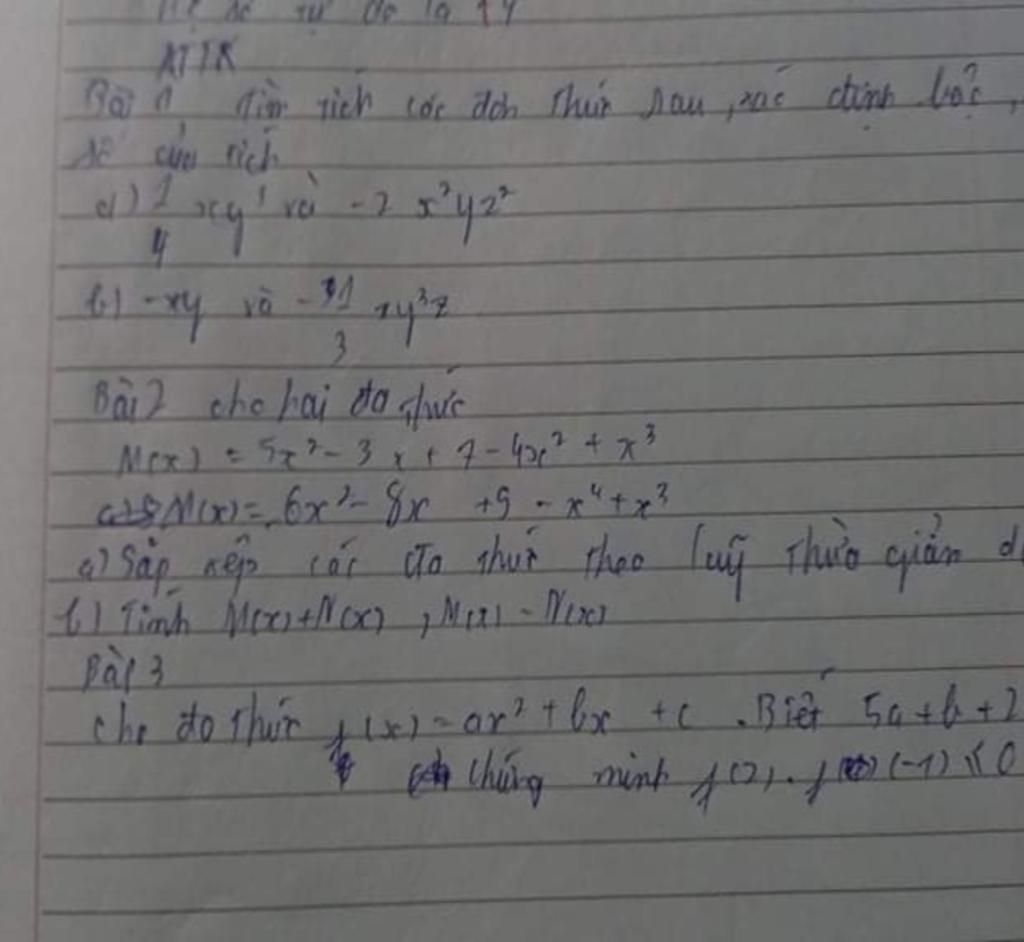 Bài 1 Tìm tích các đơn thức sau, xác định bậc,
số của tích
a) 1/4 xy' và -2 x²yz²
b) -xy và -1/3 xy³z
Bài 2 cho hai đa thức
M(x) = 5x² - 3x + 7 - 4x² + x³
N(x) = 6x² - 8x + 9 - x⁴ + x³
a) Sắp xếp các đa thức theo luỹ thừa giản d
b) Tính M(x)+N(x), M(x) - N(x)
Bài 3
cho đa thức f(x) = ax² + bx + c. Biết 5a + b + 2
chứng minh f(2). f(-1) ≤ 0